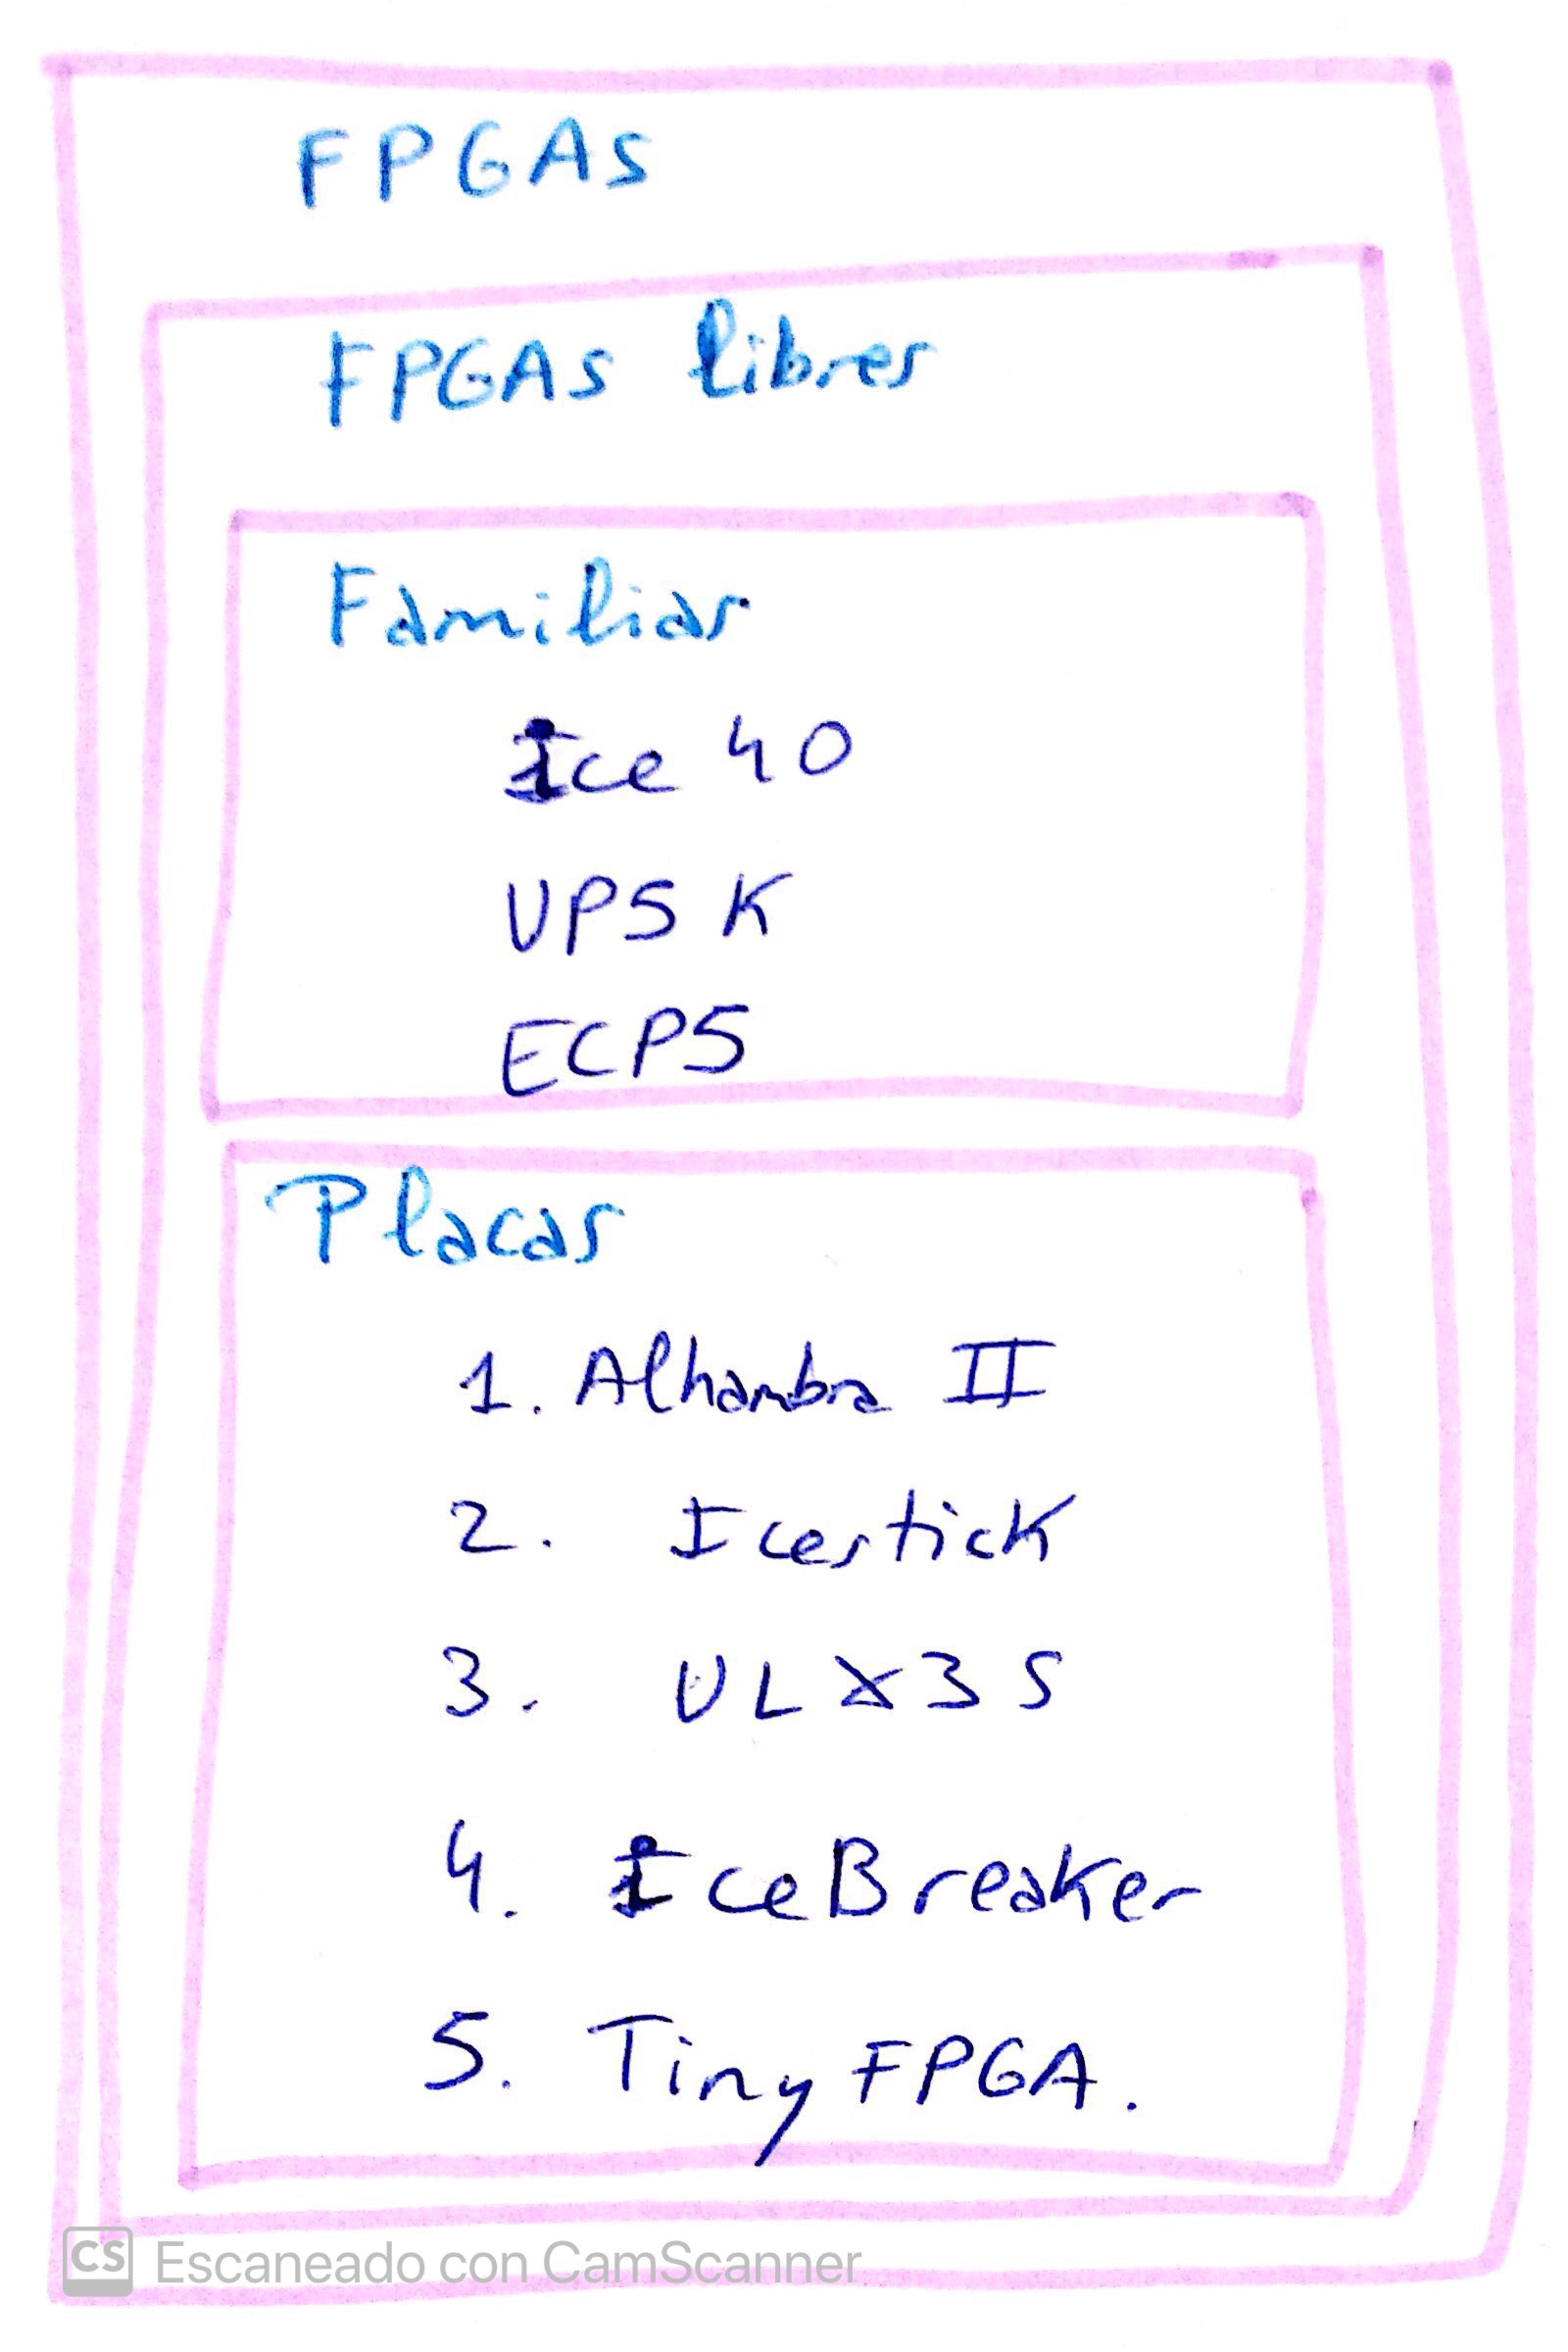 FPGAs
FPGAs libres
Familias
Ice 40
UP5 K
ECP5
Placas
1. Alhambra II
2. Icestick
3. ULX3S
4. IceBreaker
5. Tiny FPGA.
CS Escaneado con CamScanner